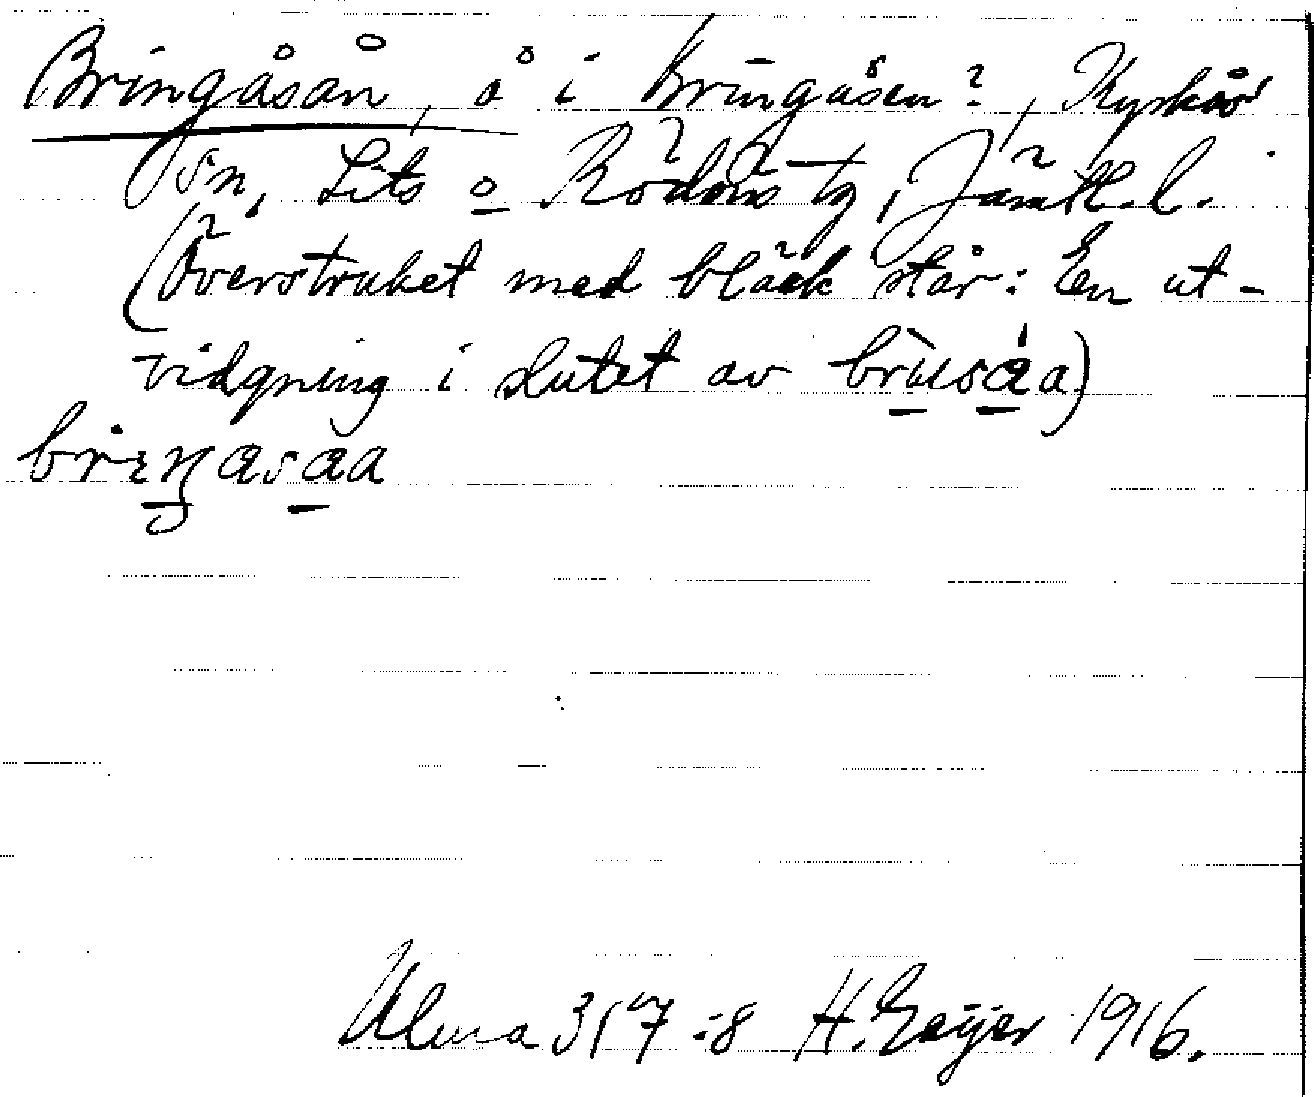 Bringåsån, å i Bringåsen?, Kyrkås
sn, Lits o Rödöns tg, Jämtl. l.
(Överstruket med bläck står: En ut-
vidgning i slutet av brusáa)
Ulma 317:8 H. Geijer 1916.